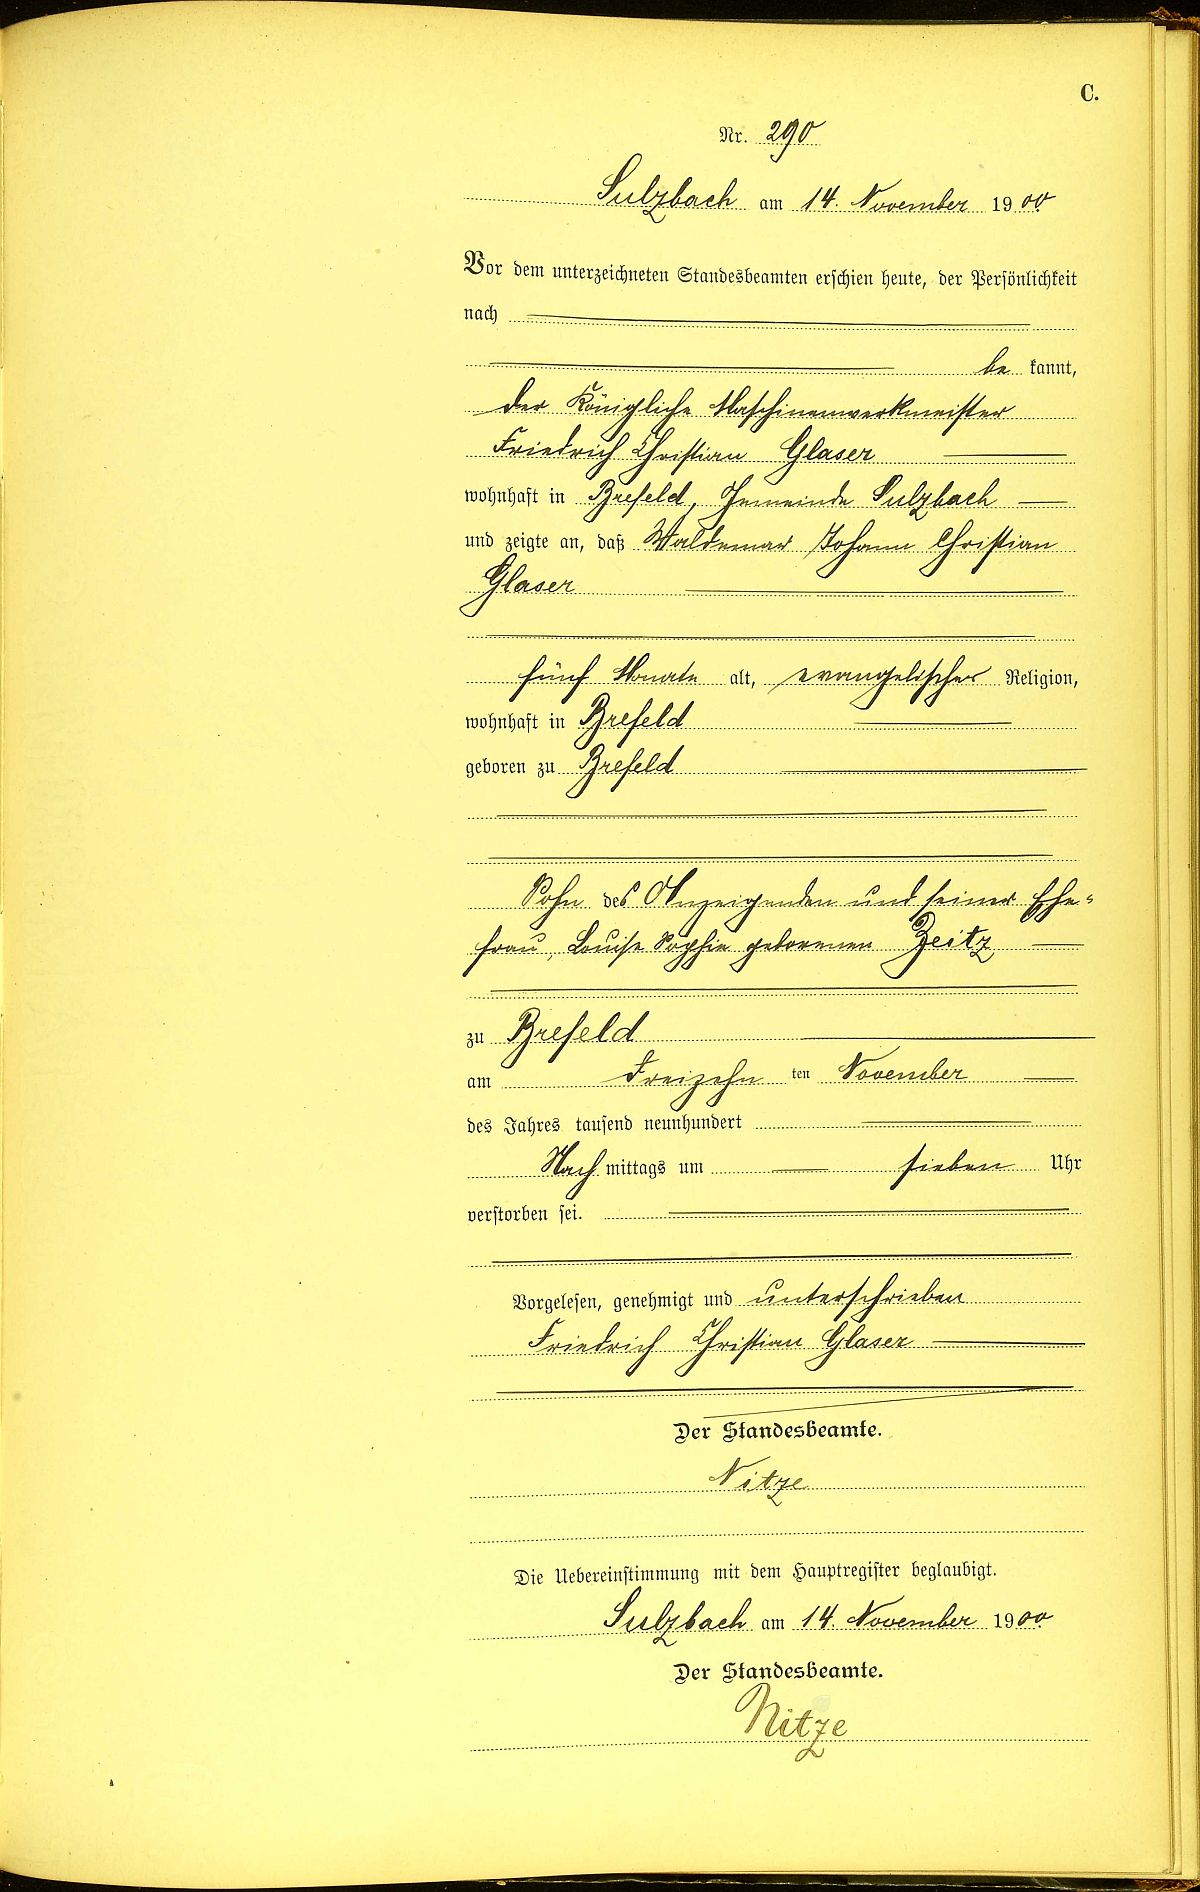 C.
Nr. 290
Sulzbach am 14. November 1900.
Vor dem unterzeichneten Standesbeamten erschien heute, der Persönlichkeit
nach
be kannt,
der Königliche Maschinenwerkmeister
Friedrich Christian Glaser
wohnhaft in Brefeld, Gemeinde Sulzbach
und zeigte an, daß Waldemar Johann Christian
Glaser
fünf Monate alt, evangelischer Religion,
wohnhaft in Brefeld
geboren zu Brefeld
Sohn des Anzeigenden und seiner Ehe-
frau, Louise Sophie geborenen Zeitz
zu Brefeld
am dreizehn ten November
des Jahres tausend neunhundert
Nach mittags um sieben Uhr
verstorben sei.
Vorgelesen, genehmigt und unterschrieben
Friedrich Christian Glaser
Der Standesbeamte.
Nitze
Die Uebereinstimmung mit dem Hauptregister beglaubigt.
Sulzbach am 14. November 1900.
Der Standesbeamte.
Nitze